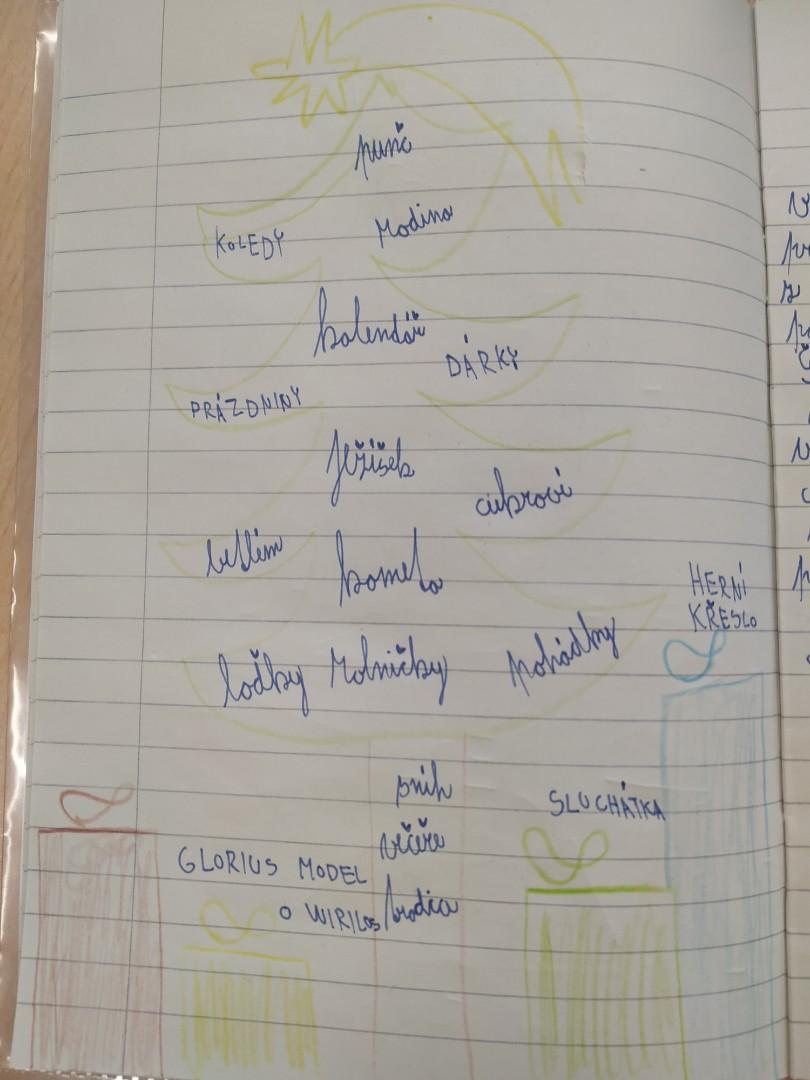 punč
KOLEDY
rodina
kalendář
DÁRKY
PRÁZDNINY
Ježíšek
cukroví
betlém
kometa
HERNÍ
KŘESLO
loďky rolničky pohádky
sníh
SLUCHÁTKA
večeře
GLORIUS MODEL
O WIRILOS